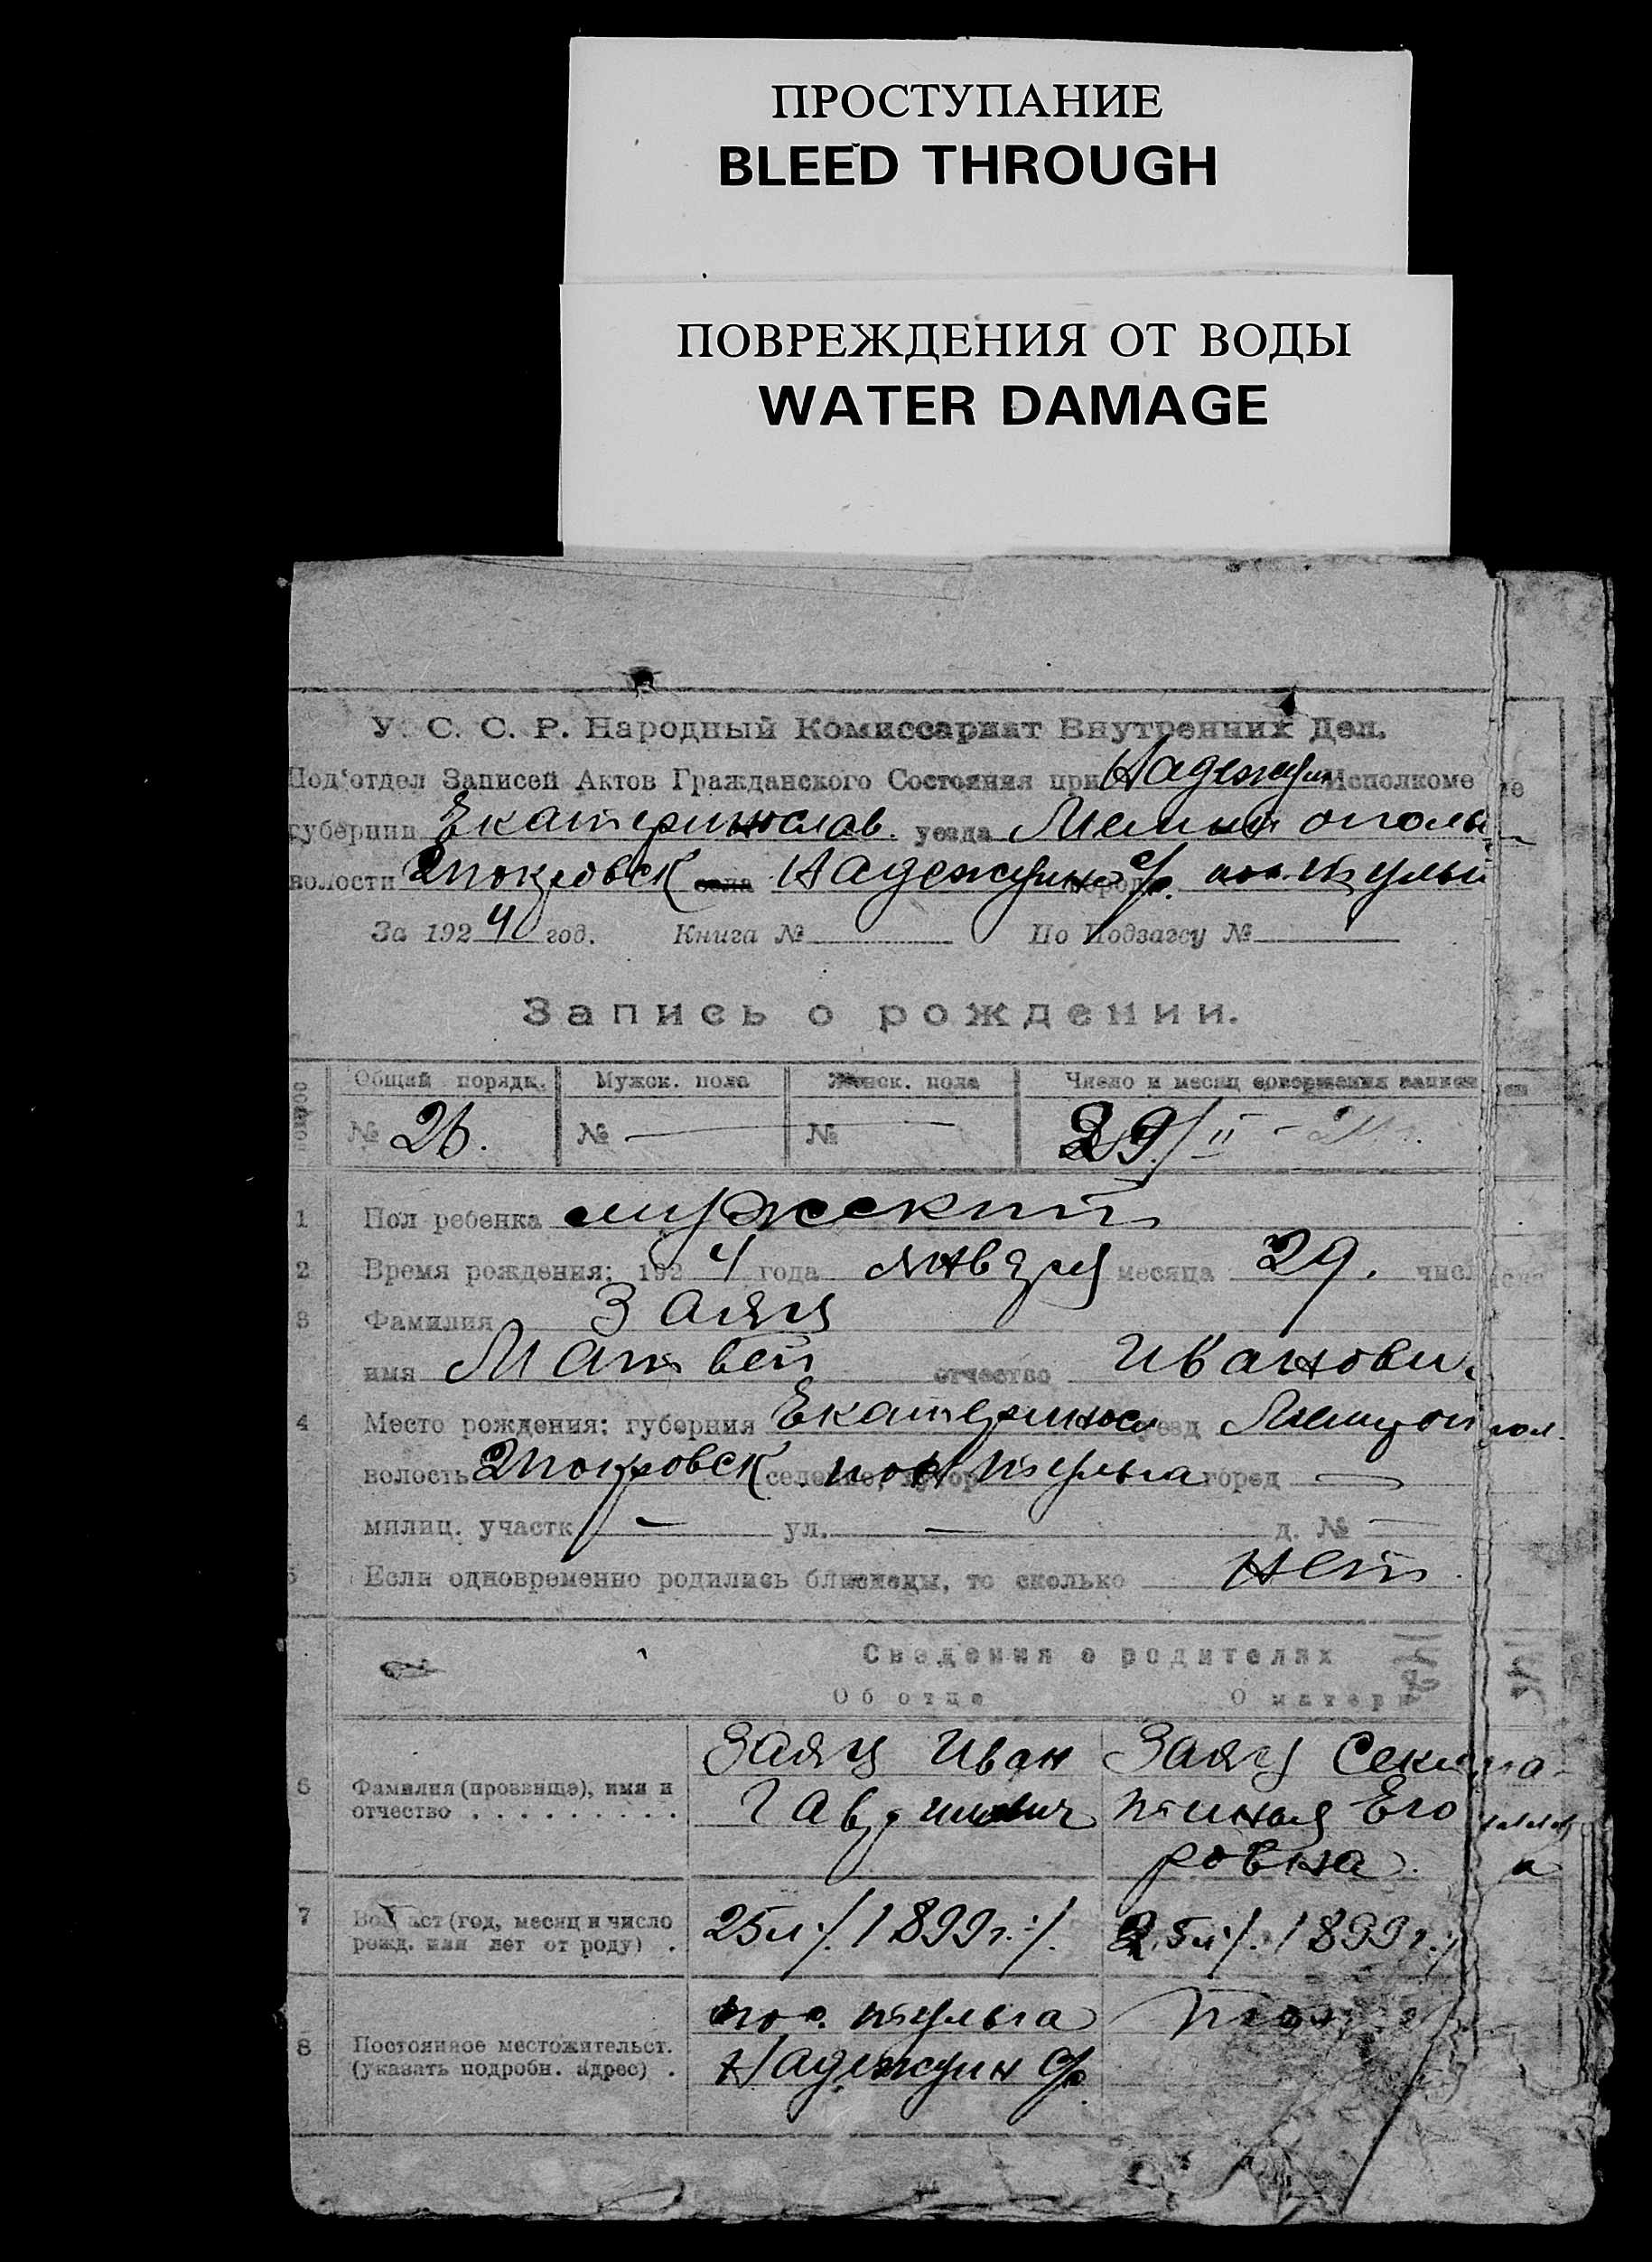 ПРОСТУПАНИЕ
BLEED THROUGH
ПОВРЕЖДЕНИЯ ОТ ВОДЫ
WATER DAMAGE
У. С. С. Р. Народный Комиссариат Внутренних Дел.
Под'отдел Записей Актов Гражданского Состояния при Надеждин Исполкоме
губернии Екатеринослав. уезда
волости Покровск села Надеждин
За 1924 год. Книга № По Подзагсу №
Запись о рождении.
Общий порядк. Мужск. пола Женск. пола Число и месяц совершения записи
№ 26. № — № — 29/II
1 Пол ребенка мужеский
2 Время рождения: 1924 года января месяца 29. числ
3 Фамилия Заяц
имя Матвей отчество Иванови
4 Место рождения: губерния Екатеринос уезд
волость Покровск селение, хутор город —
милиц. участк — ул. — д. № —
5 Если одновременно родились близнецы, то сколько нет
Сведения о родителях
Об отце О матери
6 Фамилия (прозвище), имя и отчество . . . . . . . . .
Заяц Иван Заяц
Гаврилович Его
ровна.
7 Возраст (год, месяц и число рожд. или лет от роду) .
25л./. 1899г./. 25л./. 1899г./.
8 Постоянное местожительст. (указать подробн. адрес) .
пос.
Надеждин